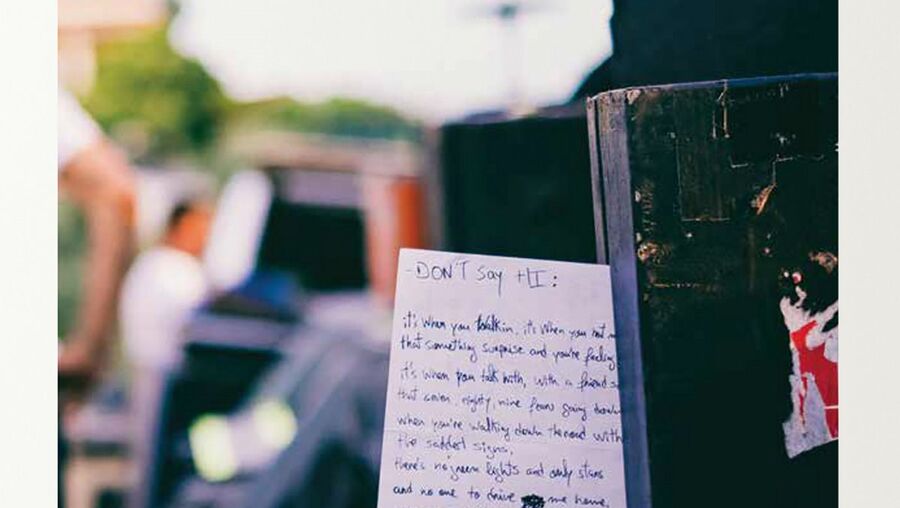 -DON'T Say HI:
it's when you walkin, it's when you not
that something surprise and you're feeling
it's when you talk with, with a friend
that seven, eighty, nine fears going down
when you're walking down the road with
the saddest signs.
there's no green lights and only stars
and no one to drive me home.